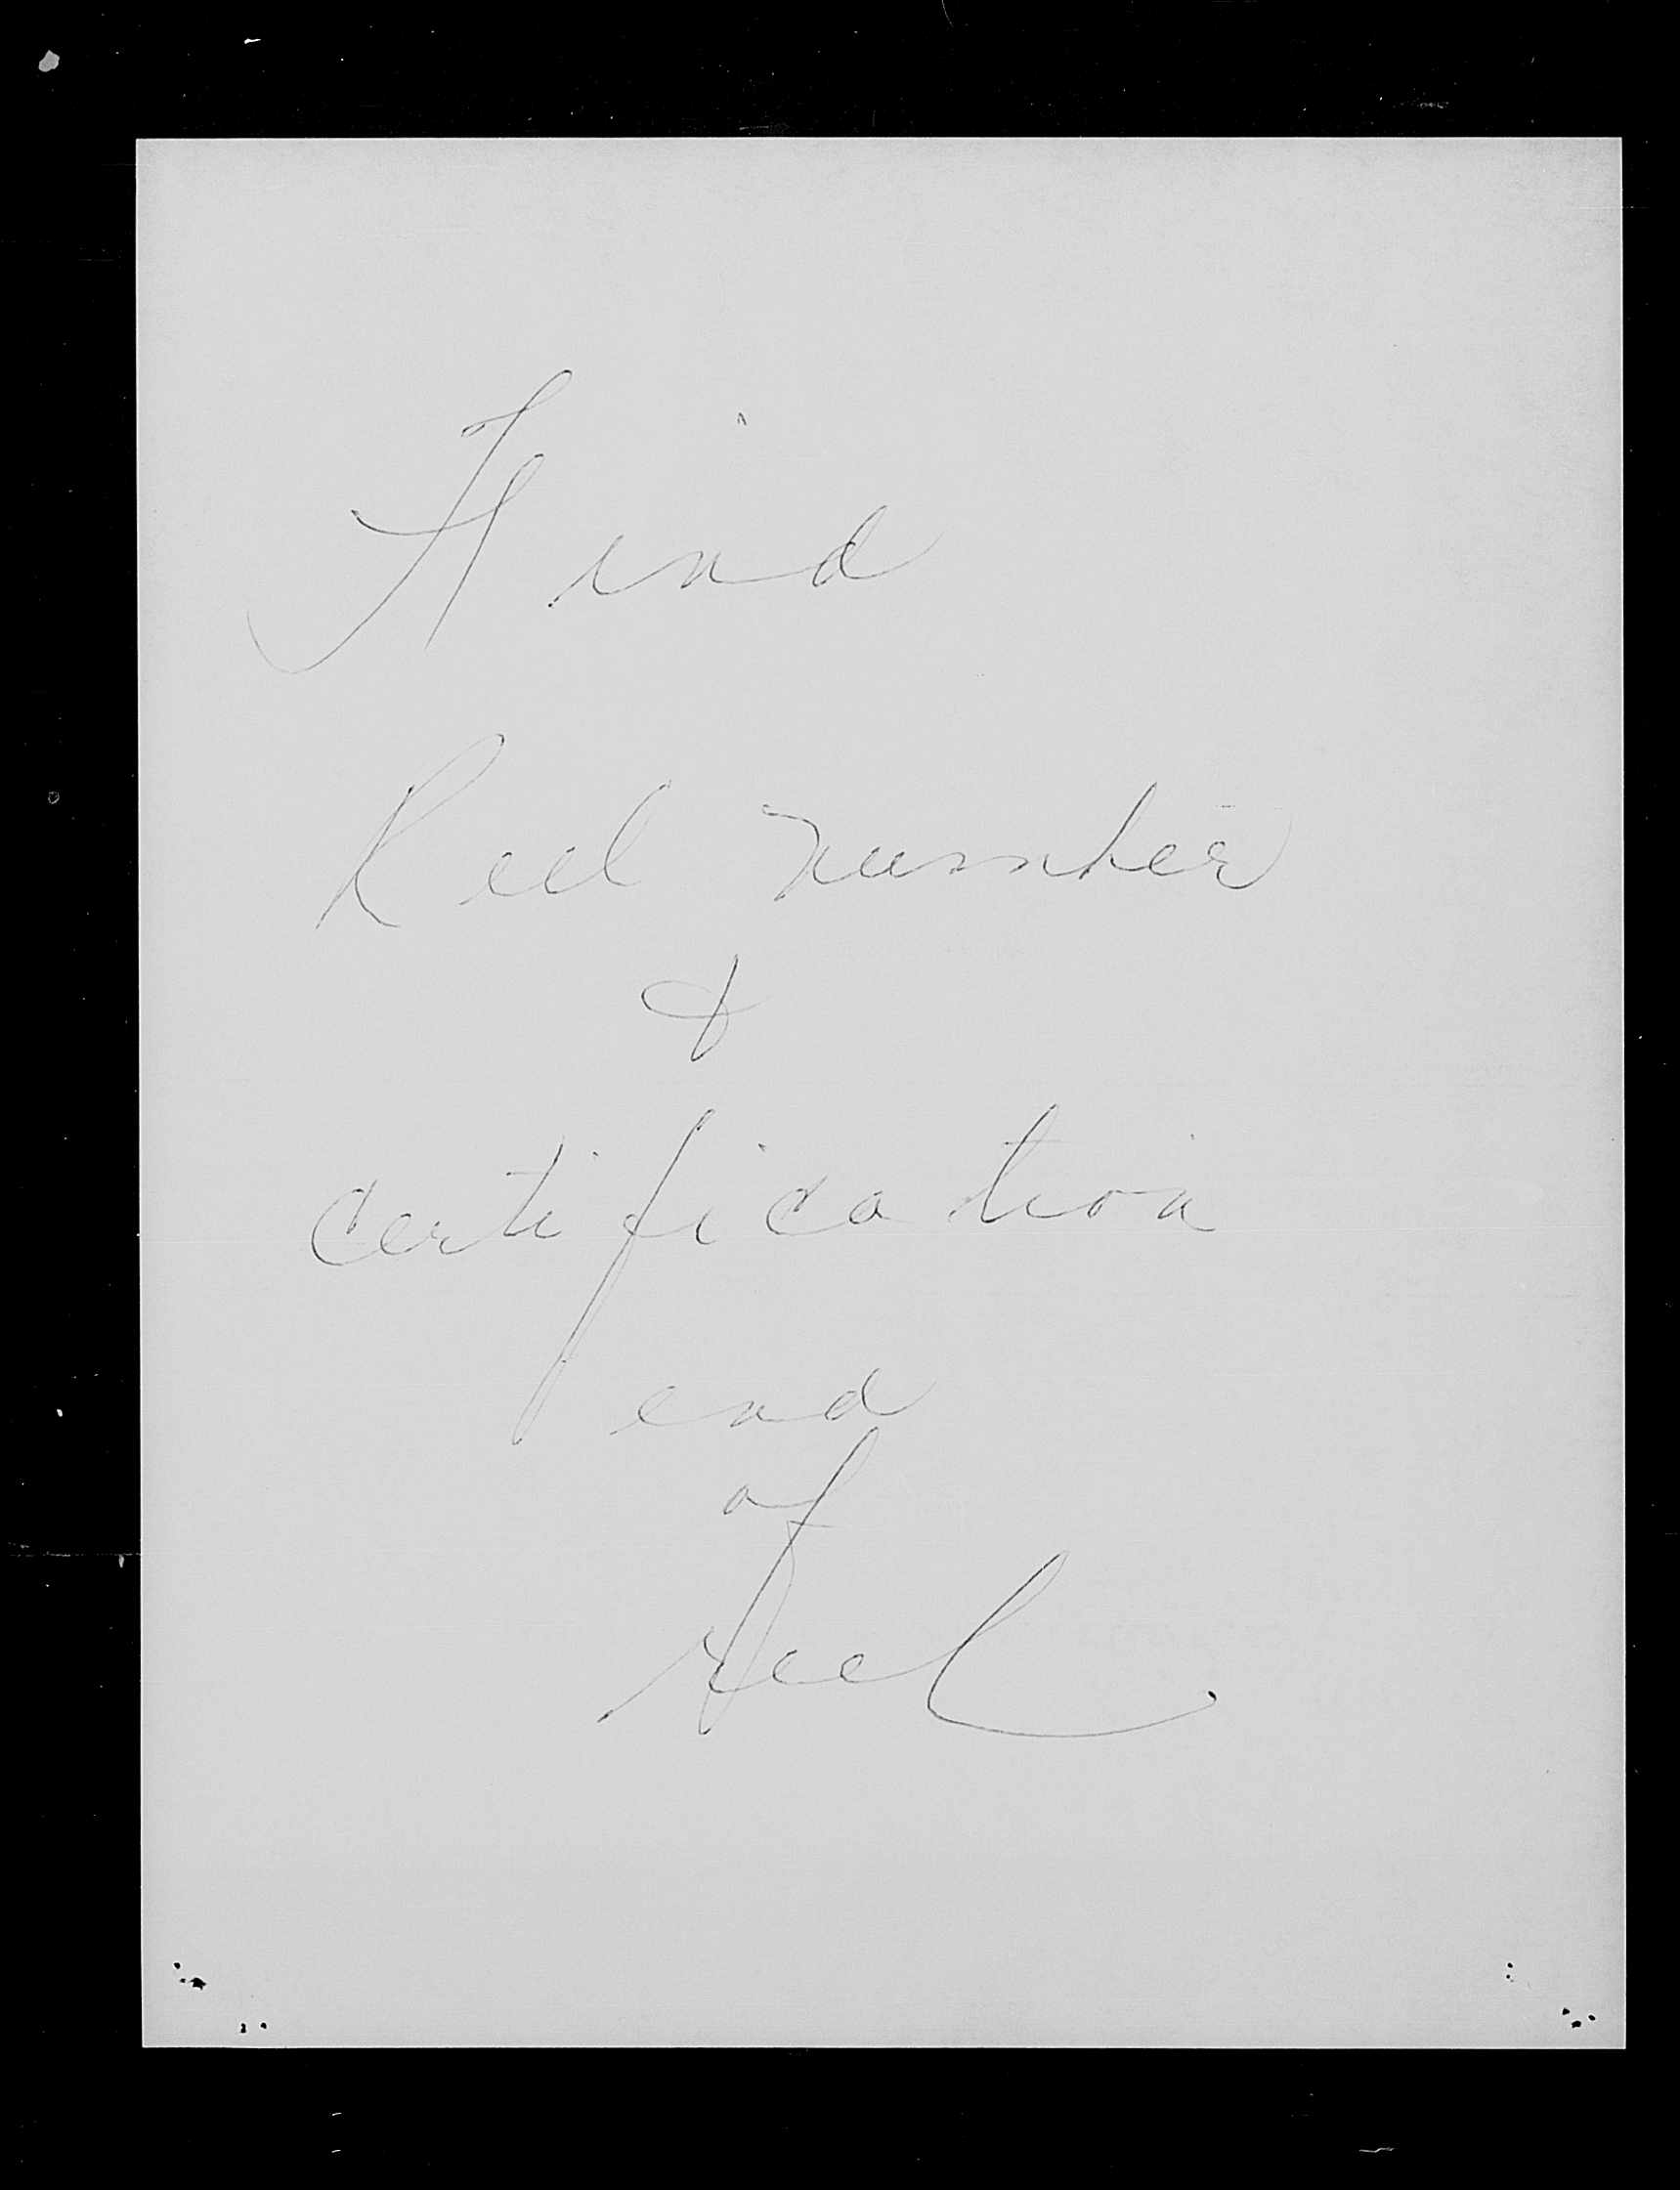 Find
Reel Number
&
Certification
end
of
Reel